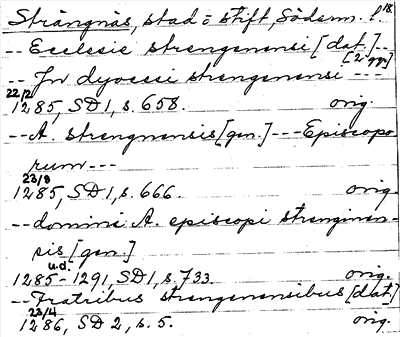 Strängnäs, stad o stift, Söderm. l. 18
-- Ecclesie strengenensi [dat.] --
-- Jn dyocesi strengenensi --- [2 ggr]
22/2
1285, SD 1, s. 658. orig.
-- A. strengnensis [gen.] --- Episcopo
rum ---
23/8
1285, SD 1, s. 666. orig.
-- domini A. episcopi strenginen-
sis [gen.]
u.d.
1285-1291, SD 1, s. 733. orig.
-- Fratribus strengenensibus [dat.]
23/4
1286, SD 2, s. 5. orig.